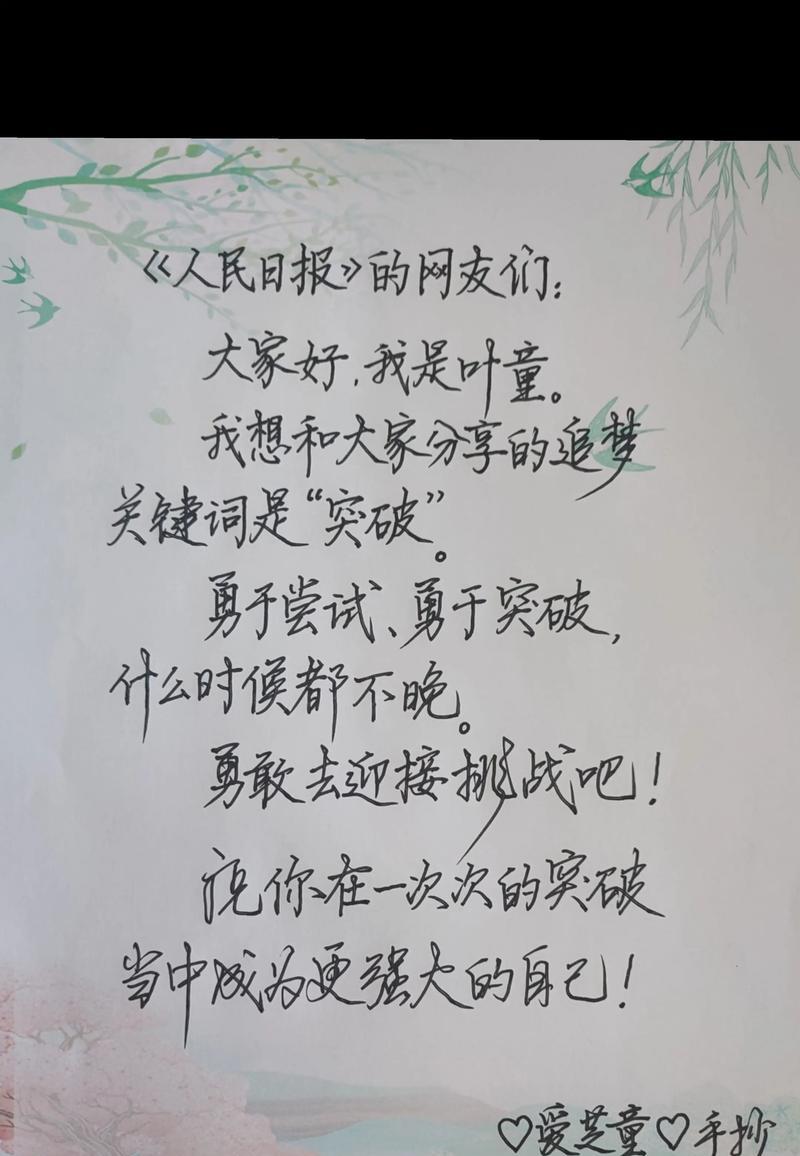 《人民日报》的网友们：
大家好，我是叶童。
我想和大家分享的追梦
关键词是“突破”。
勇于尝试、勇于突破，
什么时候都不晚。
勇敢去迎接挑战吧！
祝你在一次次的突破
当中成为更强大的自己！
♡爱芝童♡手抄